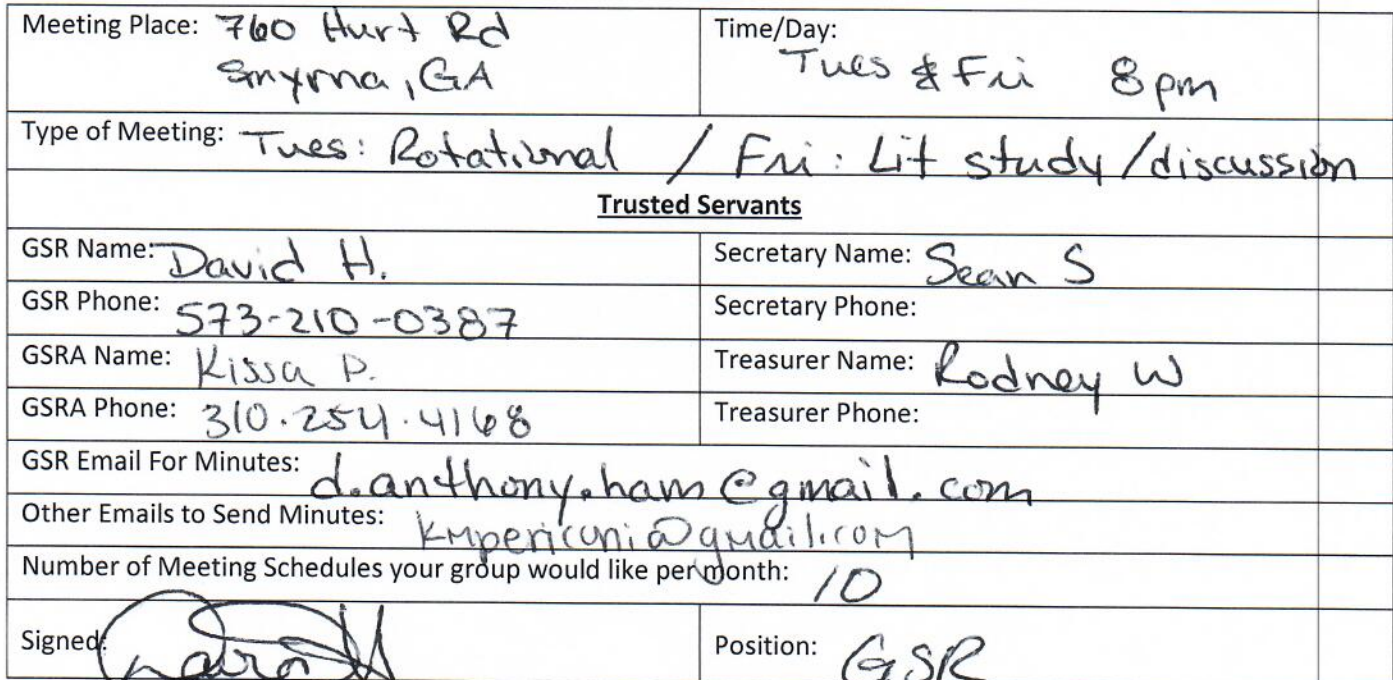 Meeting Place: 760 Hurt Rd
Smyrna, GA
Time/Day:
Tues & Fri 8pm
Type of Meeting: Tues: Rotational / Fri: Lit study/discussion
Trusted Servants
GSR Name: David H.
Secretary Name: Sean S
GSR Phone: 573-210-0387
Secretary Phone:
GSRA Name: Kissa P.
Treasurer Name: Rodney W
GSRA Phone: 310.254.4168
Treasurer Phone:
GSR Email For Minutes: d.anthony.ham@gmail.com
Other Emails to Send Minutes: kmpericoni@gmail.com
Number of Meeting Schedules your group would like per month: 10
Signed: David H
Position: GSR